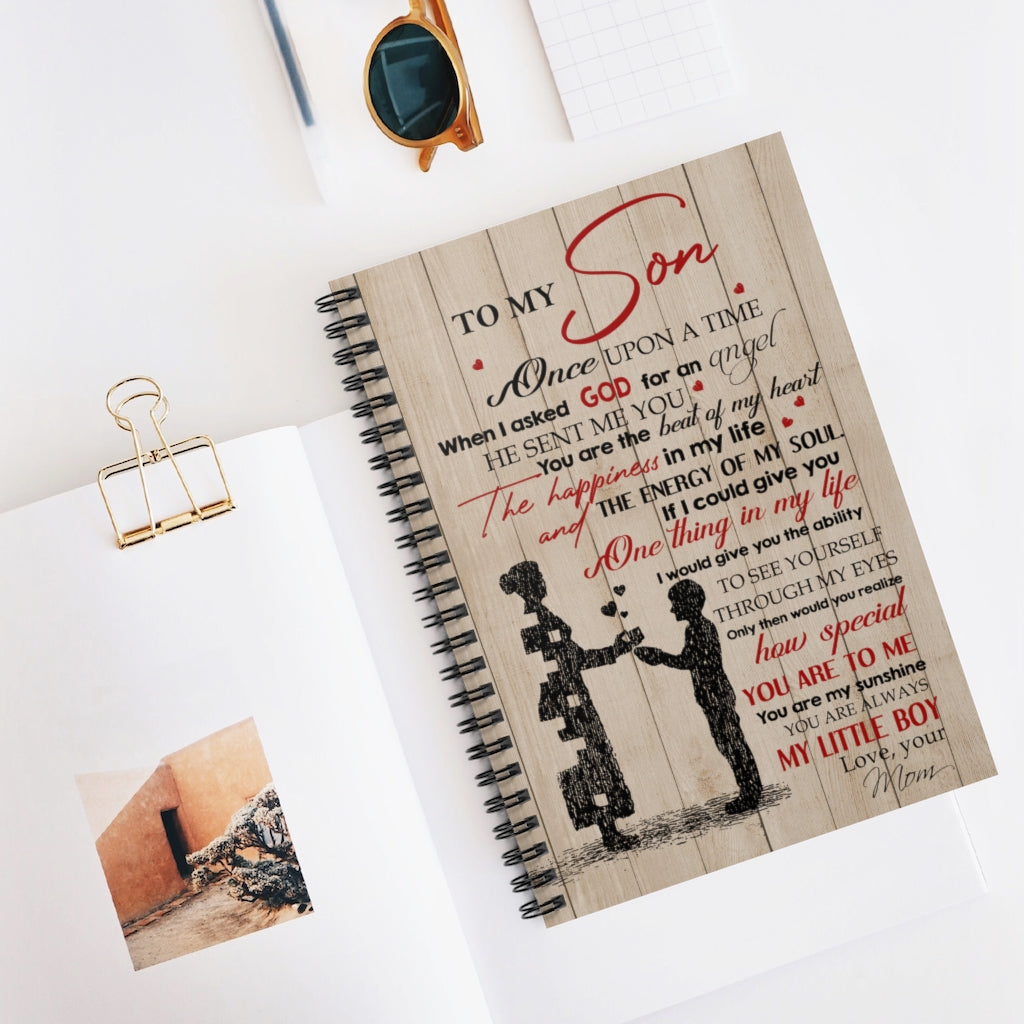 TO MY Son
Once UPON A TIME
When I asked GOD for an angel
HE SENT ME YOU
You are the beat of my heart
The happiness in my life
and THE ENERGY OF MY SOUL.
If I could give you
One thing in my life
I would give you the ability
TO SEE YOURSELF
THROUGH MY EYES
Only then would you realize
how special
YOU ARE TO ME
You are my sunshine
YOU ARE ALWAYS
MY LITTLE BOY
Love, your
Mom